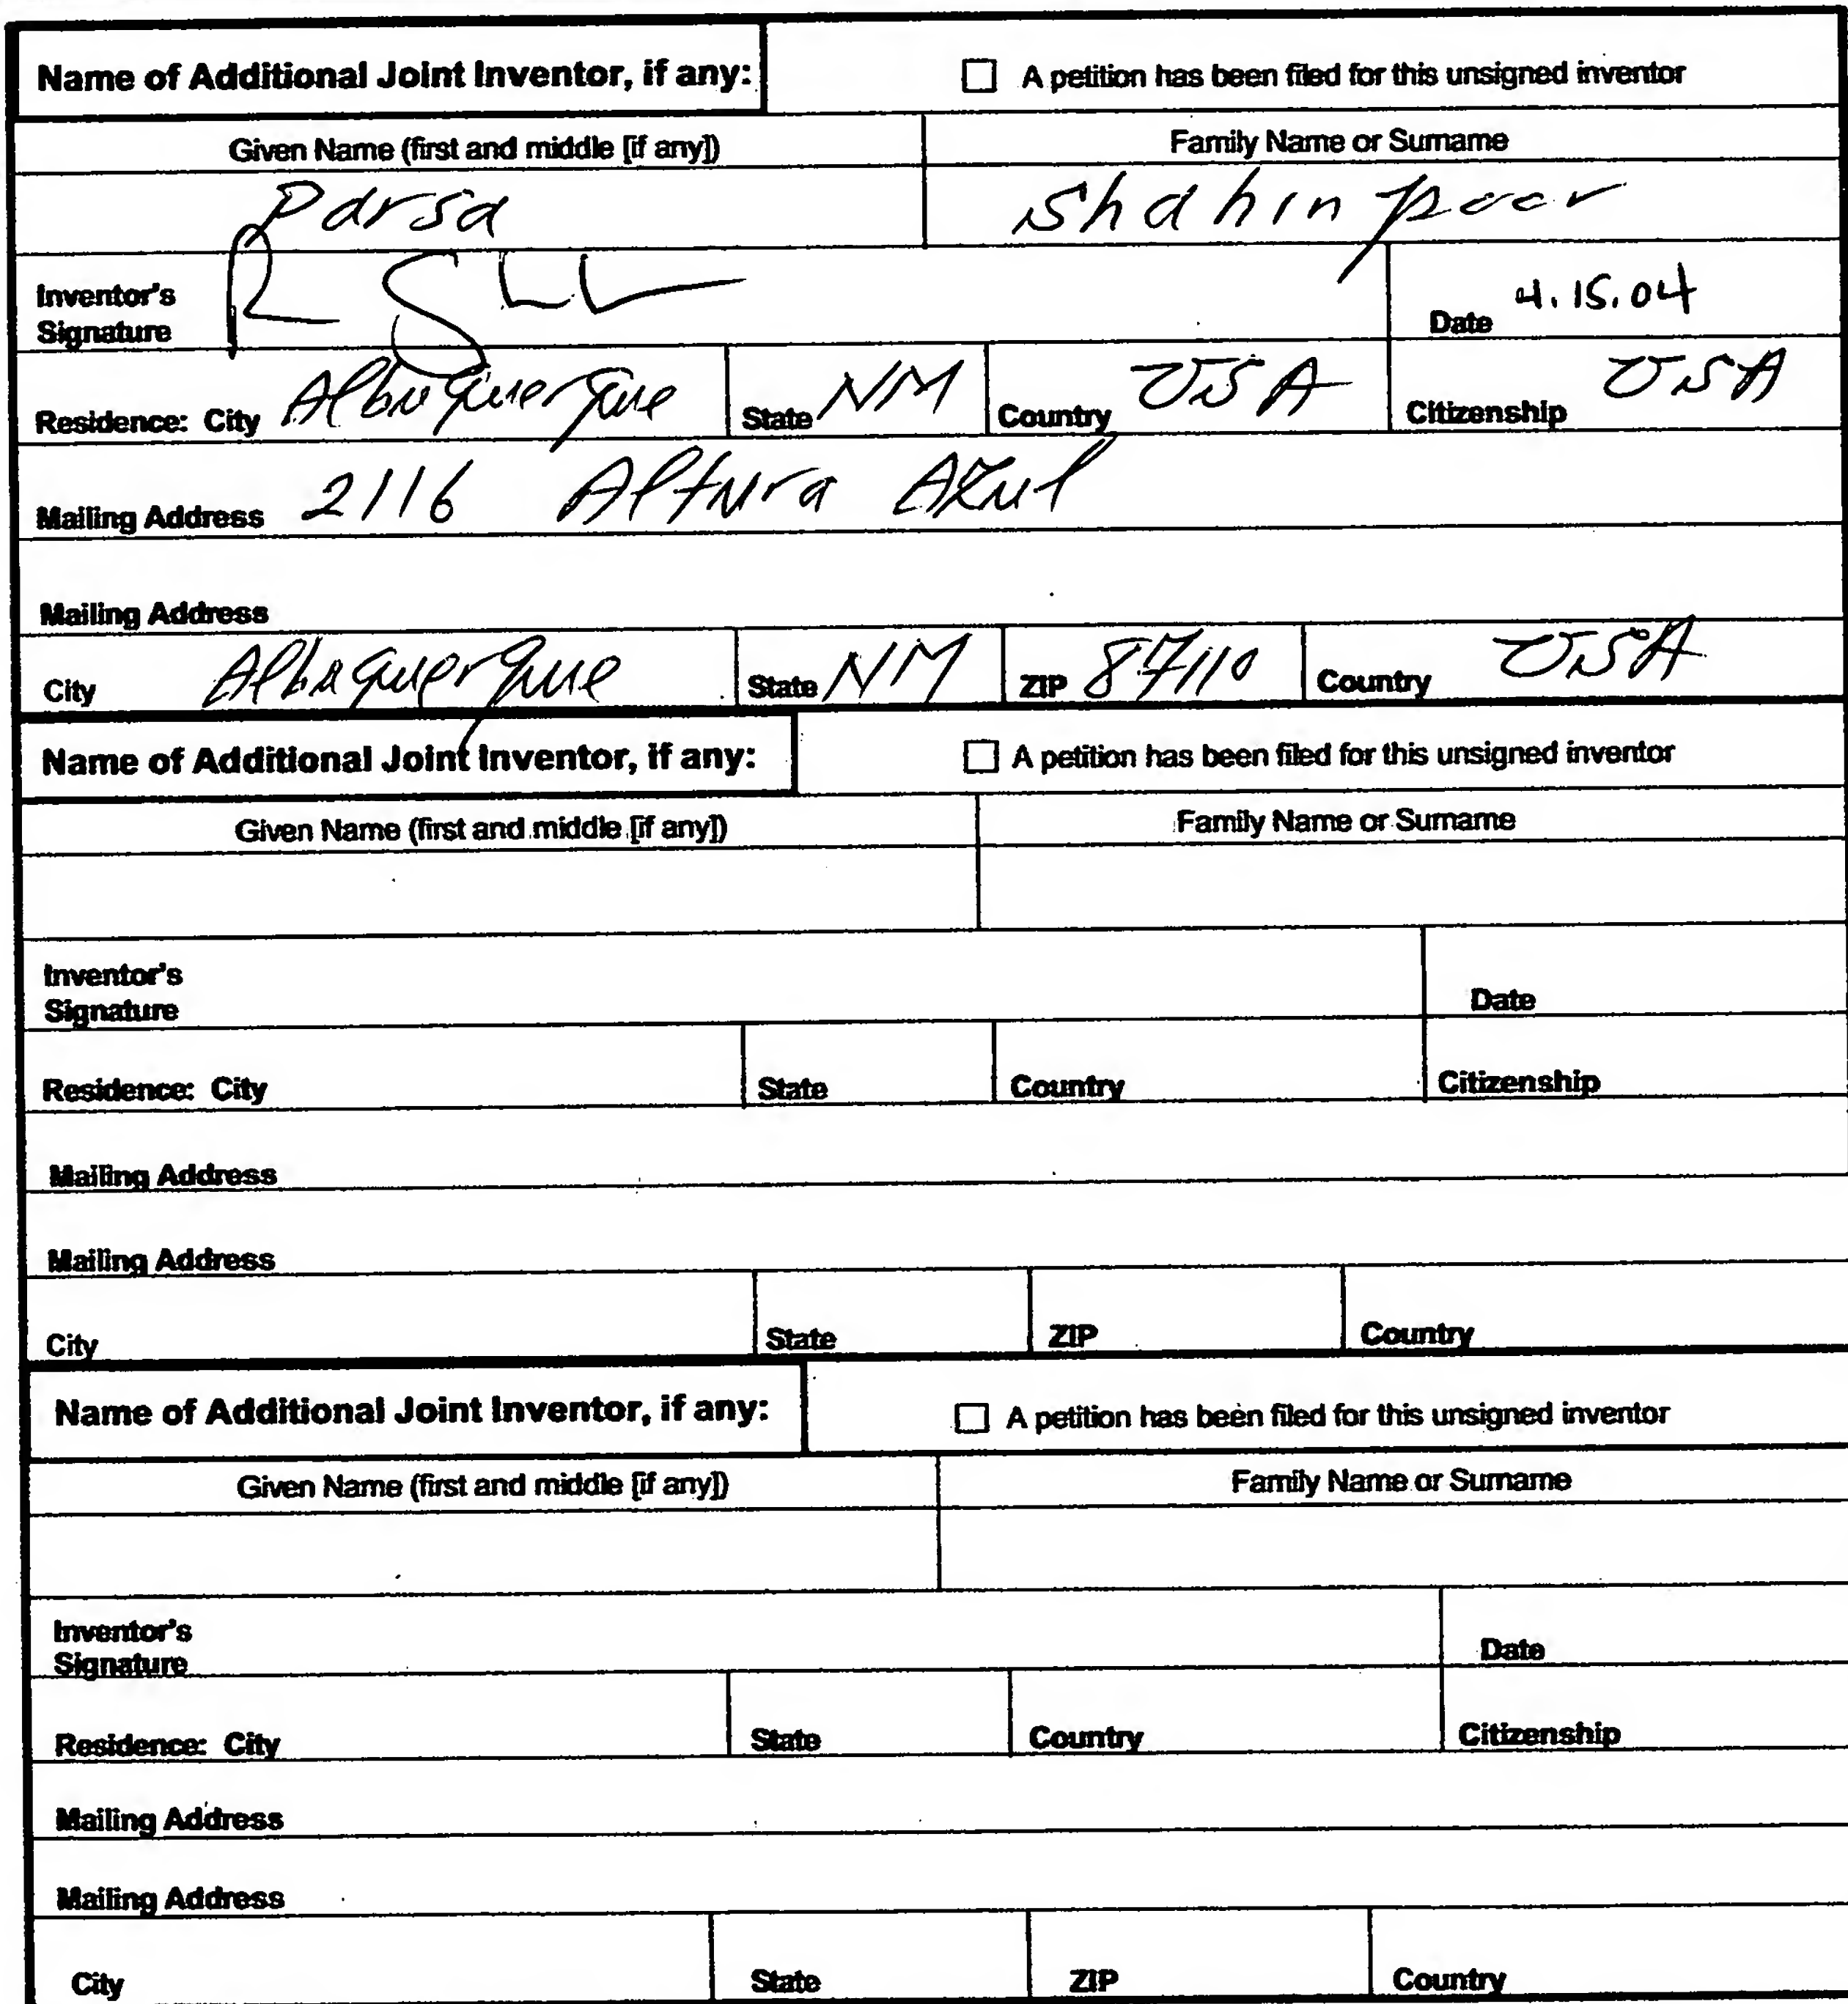 Name of Additional Joint Inventor, if any: ☐ A petition has been filed for this unsigned inventor
Given Name (first and middle [if any]) Family Name or Surname
Parsa Shahinpoor
Inventor's
Signature Date 4.15.04
Residence: City Albuquerque State NM Country USA Citizenship USA
Mailing Address 2116 Altura Azul
Mailing Address
City Albuquerque State NM ZIP 87110 Country USA
Name of Additional Joint Inventor, if any: ☐ A petition has been filed for this unsigned inventor
Given Name (first and middle [if any]) Family Name or Surname
Inventor's
Signature Date
Residence: City State Country Citizenship
Mailing Address
Mailing Address
City State ZIP Country
Name of Additional Joint Inventor, if any: ☐ A petition has been filed for this unsigned inventor
Given Name (first and middle [if any]) Family Name or Surname
Inventor's
Signature Date
Residence: City State Country Citizenship
Mailing Address
Mailing Address
City State ZIP Country